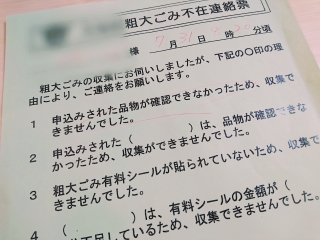 粗大ごみ不在連絡票
様 7月31日 時 分頃
粗大ごみの収集にお伺いしましたが、下記の○印の理
由により、ご連絡をお願いします。
1 申込みされた品物が確認できなかったため、収集で
きませんでした。
2 申込みされた( )は、品物が確認できな
かったため、収集ができませんでした。
3 粗大ごみ有料シールが貼られていないため、収集で
きませんでした。
4 ( )は、有料シールの金額が(
不足しているため、収集できませんでした。